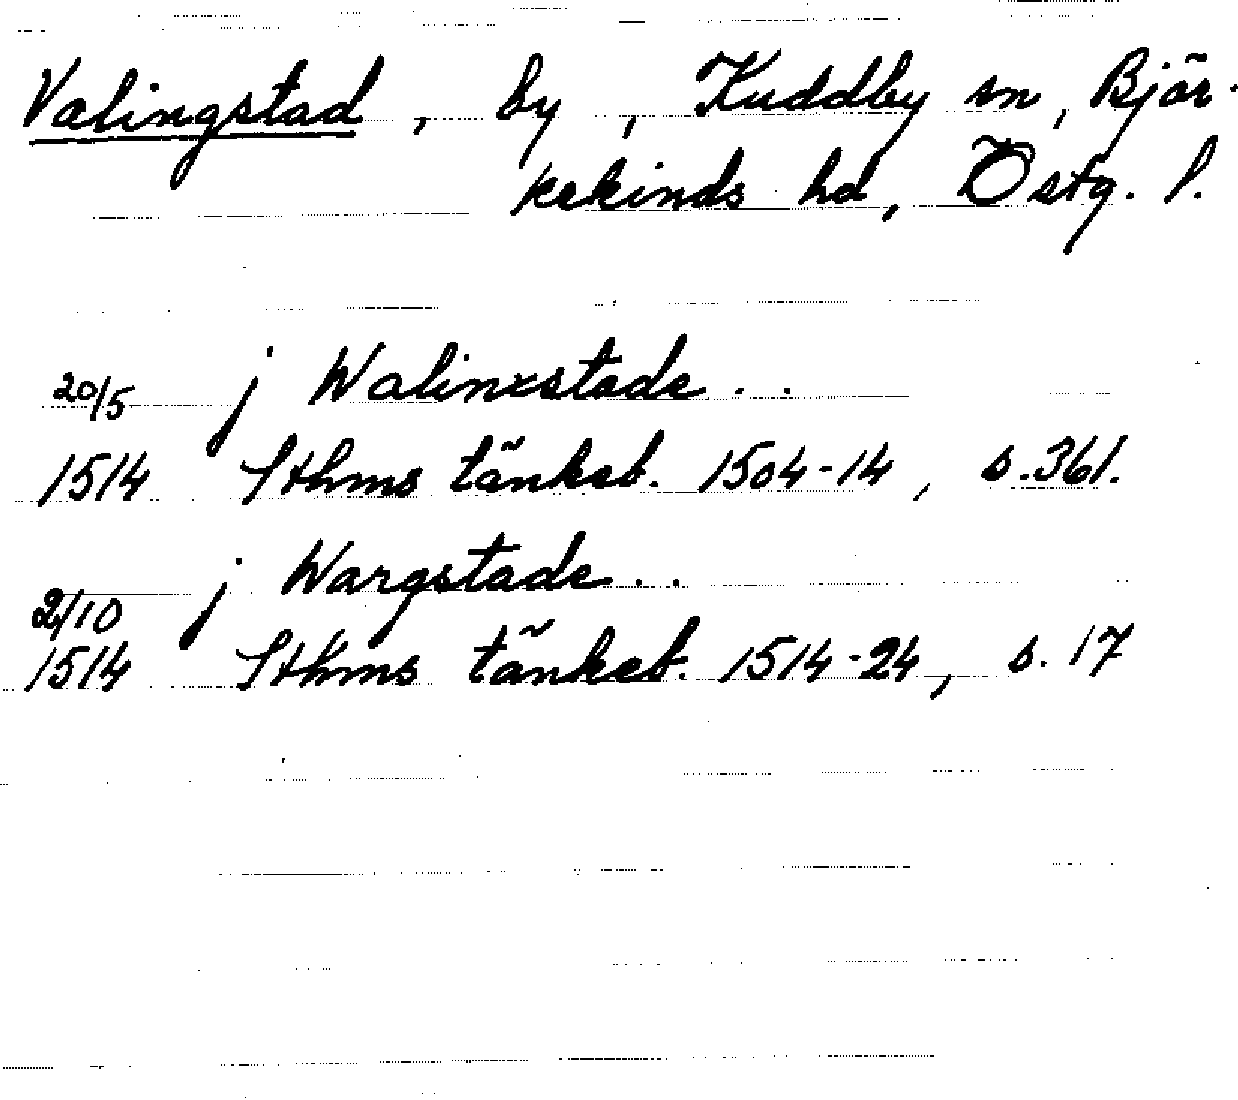 Valingstad, by, Kuddby sn, Björ-
kekinds hd, Östg. l.
20/5 j Walinxstade . .
1514 Sthms tänkeb. 1504-14, s. 361.
2/10 j Wargstade . .
1514 Sthms tänkeb. 1514-24, s. 17